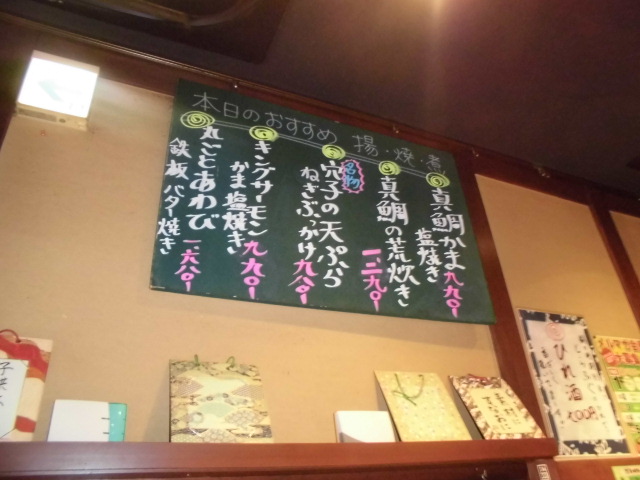 本日のおすすめ 揚・焼・煮
真鯛かま
塩焼き 九九〇-
真鯛の荒炊き
一、二九〇-
名物
穴子の天ぷら
ねぎぶっかけ 九八〇-
キングサーモン
かま塩焼き 九九〇-
丸ごとあわび
鉄板バター焼き 一、六八〇-
ひれ酒